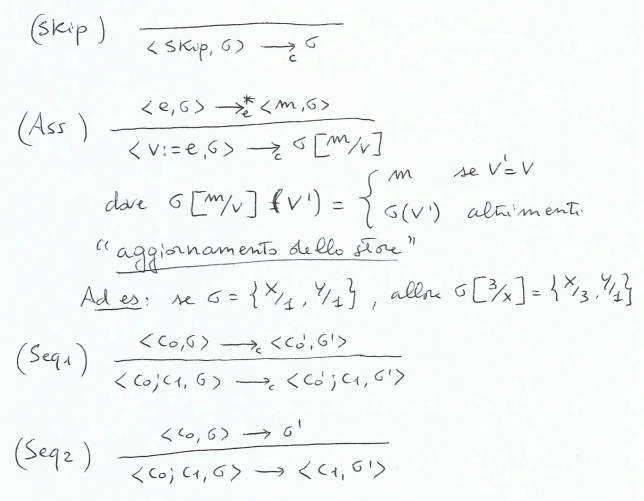 (Skip) ─────────
<skip, σ> →c σ
(Ass) <e,σ> →*e <m,σ>
<v:=e,σ> →c σ[m/v]
dove σ[m/v](v') = { m se v'=v
σ(v') altrimenti
"aggiornamento dello store"
Ad es: se σ = {x/1, y/1}, allora σ[3/x] = {x/3, y/1}
(Seq1) <c0,σ> →c <c0',σ'>
<c0;c1,σ> →c <c0';c1,σ'>
(Seq2) <c0,σ> → σ'
<c0;c1,σ> → <c1,σ'>